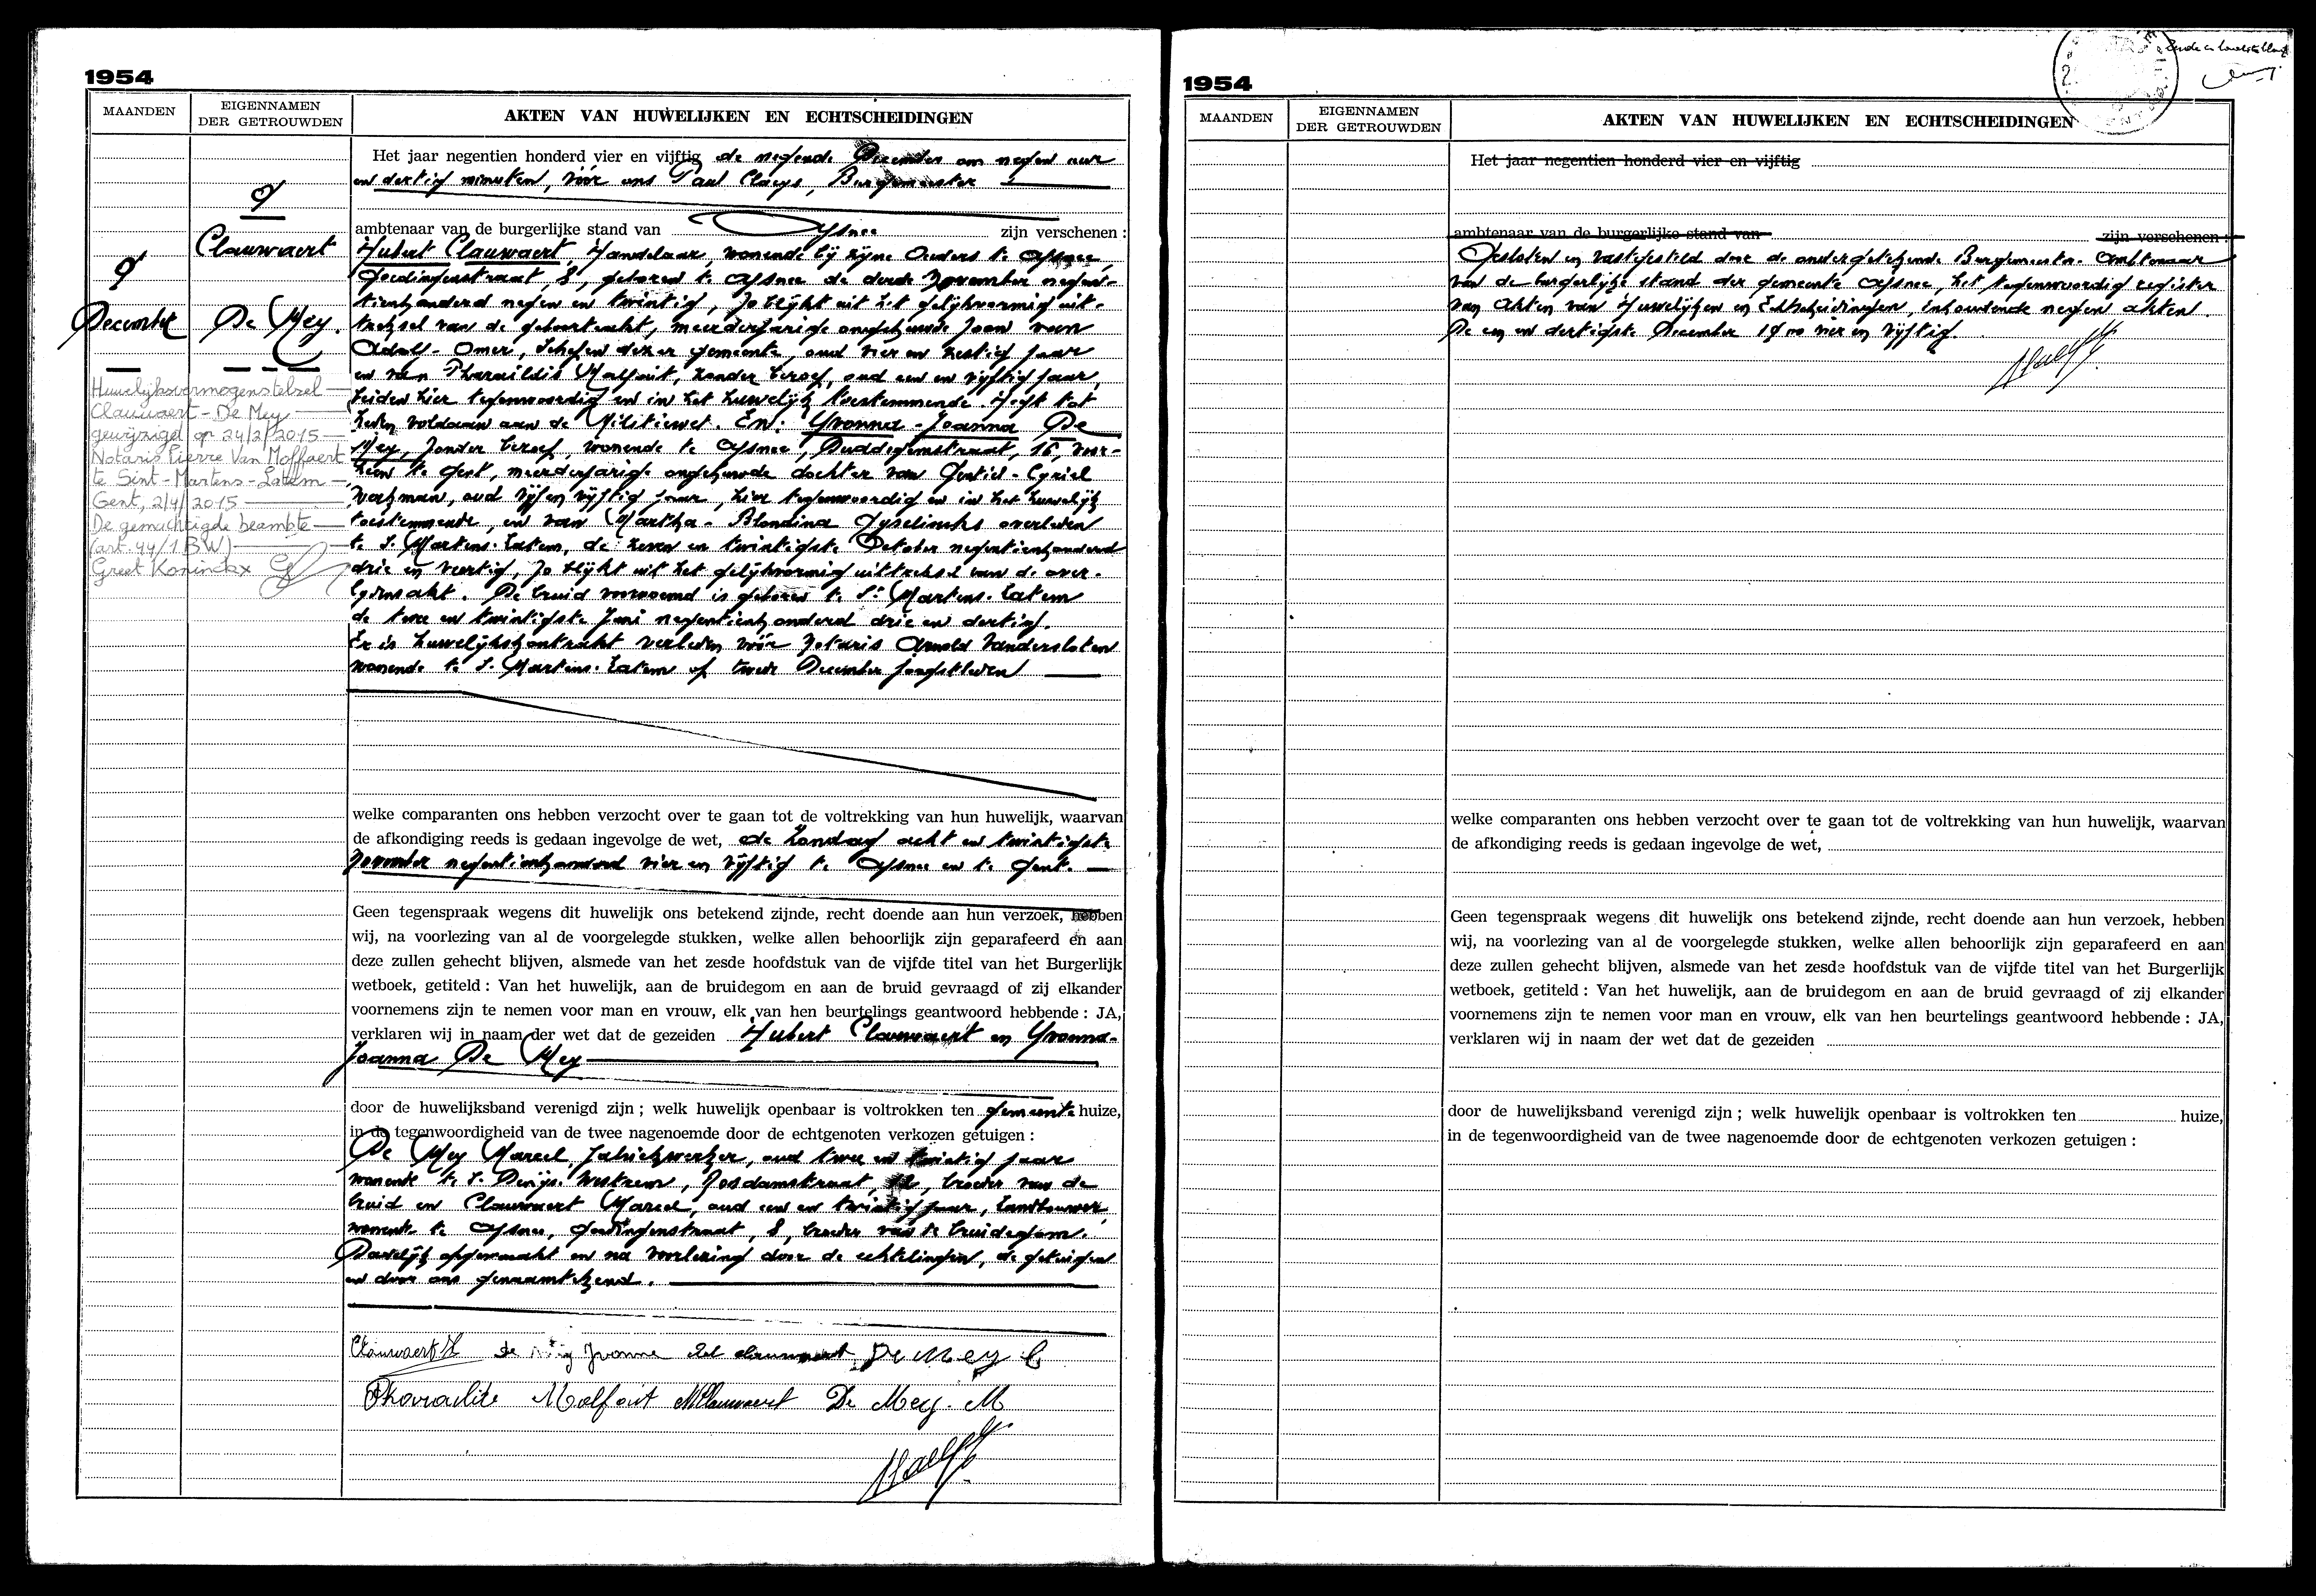 1954
MAANDEN
EIGENNAMEN
DER GETROUWDEN
AKTEN VAN HUWELIJKEN EN ECHTSCHEIDINGEN
9
Clauwaert
9
December
De Mey.
Huwelijksvermogenstelsel
Clauwaert - De Mey
gewijzigd op 24/2/2015
Notaris Pierre Van Moffaert
te Sint-Martens-Latem
Gent, 2/4/2015
De gemachtigde beambte
(art. 44/1 BW)
Greet Koninckx
Het jaar negentien honderd vier en vijftig de negende December om negen uur
en dertig minuten, vóór ons Paul Claeys, Burgemeester
ambtenaar van de burgerlijke stand van Afsnee zijn verschenen :
Hubert Clauwaert, Handelaar, wonende bij zijne Ouders te Afsnee,
Goedingenstraat, 8, geboren te Afsnee de derde November negen-
tienhonderd negen en twintig, zo blijkt uit het gelijkvormig uit-
treksel van de geboorteakt, meerderjarige ongehuwde zoon van
Adolf-Omer, Schepen dezer gemeente, oud vier en zestig jaar
en van Pharaildis Malfait, zonder beroep, oud een en vijftig jaar,
beiden hier tegenwoordig en in het huwelijk toestemmende. Heeft tot
heden voldaan aan de Militiewet. En: Yvonna-Joanna De
Mey, zonder beroep, wonende te Afsnee, Duddegemstraat, 16, voor-
heen te Gent, meerderjarige ongehuwde dochter van Gentiel-Cyriel
Werkman, oud vijf en vijftig jaar, hier tegenwoordig en in het huwelijk
toestemmende, en van Martha-Blondina Gyselincks overleden
te S. Martens-Latem, de zeven en twintigste October negentienhonderd
drie en veertig, zo blijkt uit het gelijkvormig uittreksel van de over-
lijdensakt. De bruid voornoemd is geboren te St Martens-Latem
de twee en twintigste Juni negentienhonderd drie en dertig.
Er is huwelijkskontrakt verleden vóór Notaris Arnold Vandersloten
wonende te S. Martens-Latem op twede December jongstleden
welke comparanten ons hebben verzocht over te gaan tot de voltrekking van hun huwelijk, waarvan
de afkondiging reeds is gedaan ingevolge de wet, de Zondag acht en twintigste
November negentienhonderd vier en vijftig te Afsnee en te Gent.
Geen tegenspraak wegens dit huwelijk ons betekend zijnde, recht doende aan hun verzoek, hebben
wij, na voorlezing van al de voorgelegde stukken, welke allen behoorlijk zijn geparafeerd en aan
deze zullen gehecht blijven, alsmede van het zesde hoofdstuk van de vijfde titel van het Burgerlijk
wetboek, getiteld : Van het huwelijk, aan de bruidegom en aan de bruid gevraagd of zij elkander
voornemens zijn te nemen voor man en vrouw, elk van hen beurtelings geantwoord hebbende : JA,
verklaren wij in naam der wet dat de gezeiden Hubert Clauwaert en Yvonna-
Joanna De Mey
door de huwelijksband verenigd zijn ; welk huwelijk openbaar is voltrokken ten gemeente huize,
in de tegenwoordigheid van de twee nagenoemde door de echtgenoten verkozen getuigen :
De Mey Marcel, fabriekwerker, oud twee en twintig jaar
wonende te S. Denijs-Westrem, Gosdamstraat, broeder van de
bruid en Clauwaert Marcel, oud een en twintig jaar, landbouwer,
wonende te Afsnee, Goedingenstraat, 8, broeder van de bruidegom.
Dadelijk opgemaakt en na voorlezing door de echtelingen, de getuigen
en door ons genaamtekend.
Clauwaert H de Mey Yvonne clauwaert De Mey C
Pharaïlde Malfait M Clauwaert De Mey. M
1954
MAANDEN
EIGENNAMEN
DER GETROUWDEN
AKTEN VAN HUWELIJKEN EN ECHTSCHEIDINGEN
Het jaar negentien honderd vier en vijftig
ambtenaar van de burgerlijke stand van zijn verschenen :
Gesloten en vastgesteld door de ondergetekende Burgemeester-Ambtenaar
van de burgerlijke stand der gemeente Afsnee, het tegenwoordig register
van Akten van Huwelijken en Echtscheidingen, inhoudende negen akten.
De een en dertigste December 1900 vier en vijftig.
welke comparanten ons hebben verzocht over te gaan tot de voltrekking van hun huwelijk, waarvan
de afkondiging reeds is gedaan ingevolge de wet,
Geen tegenspraak wegens dit huwelijk ons betekend zijnde, recht doende aan hun verzoek, hebben
wij, na voorlezing van al de voorgelegde stukken, welke allen behoorlijk zijn geparafeerd en aan
deze zullen gehecht blijven, alsmede van het zesde hoofdstuk van de vijfde titel van het Burgerlijk
wetboek, getiteld : Van het huwelijk, aan de bruidegom en aan de bruid gevraagd of zij elkander
voornemens zijn te nemen voor man en vrouw, elk van hen beurtelings geantwoord hebbende : JA,
verklaren wij in naam der wet dat de gezeiden
door de huwelijksband verenigd zijn ; welk huwelijk openbaar is voltrokken ten huize,
in de tegenwoordigheid van de twee nagenoemde door de echtgenoten verkozen getuigen :